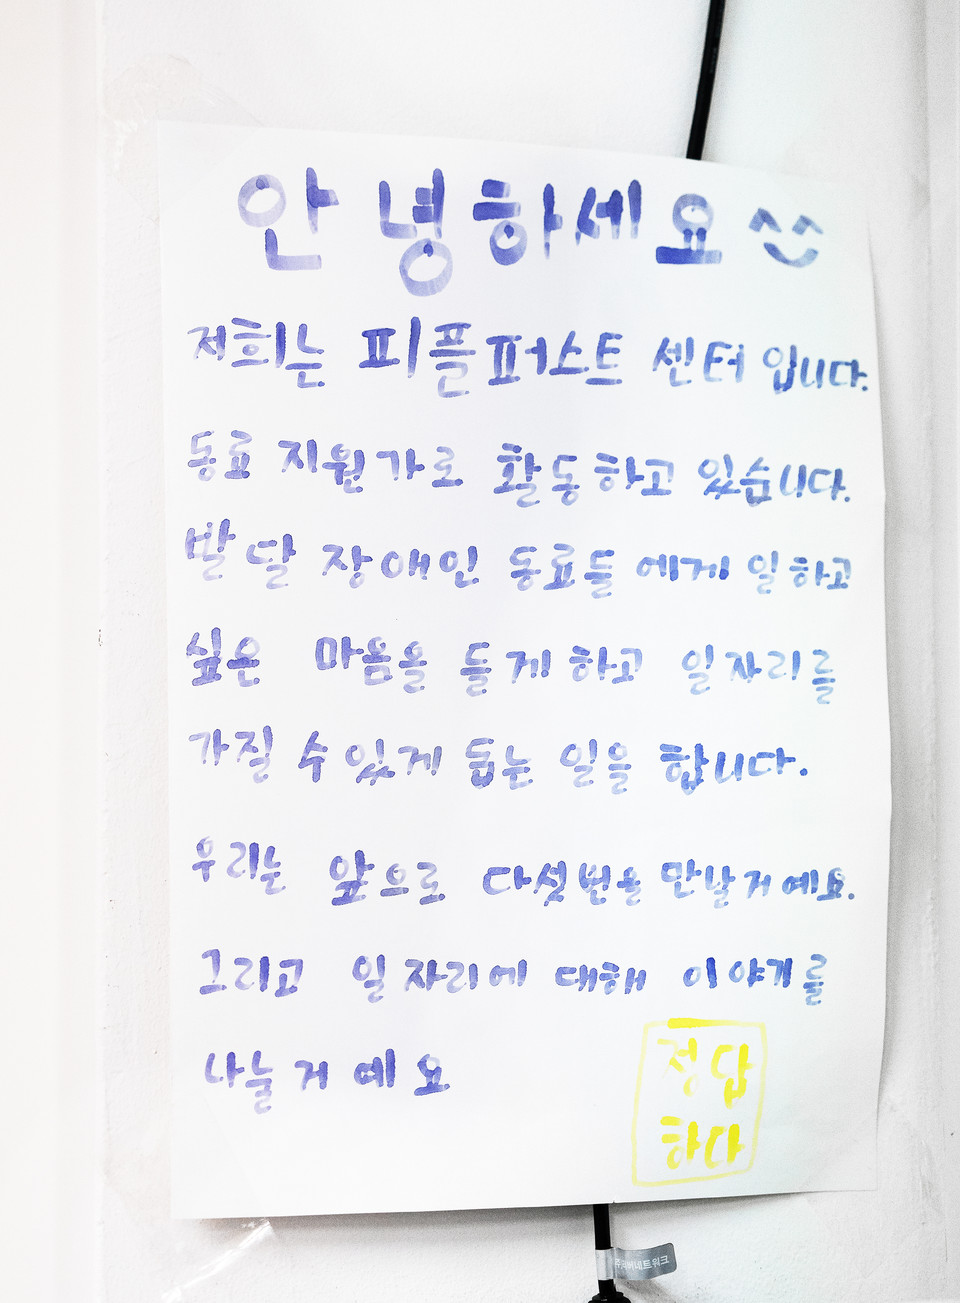 안녕하세요 ^^
저희는 피플퍼스트 센터 입니다.
동료 지원가로 활동하고 있습니다.
발달 장애인 동료들에게 일하고
싶은 마음을 들게 하고 일자리를
가질 수 있게 돕는 일을 합니다.
우리는 앞으로 다섯번을 만날거예요.
그리고 일자리에 대해 이야기를
나눌거예요
정답
하다
네트워크